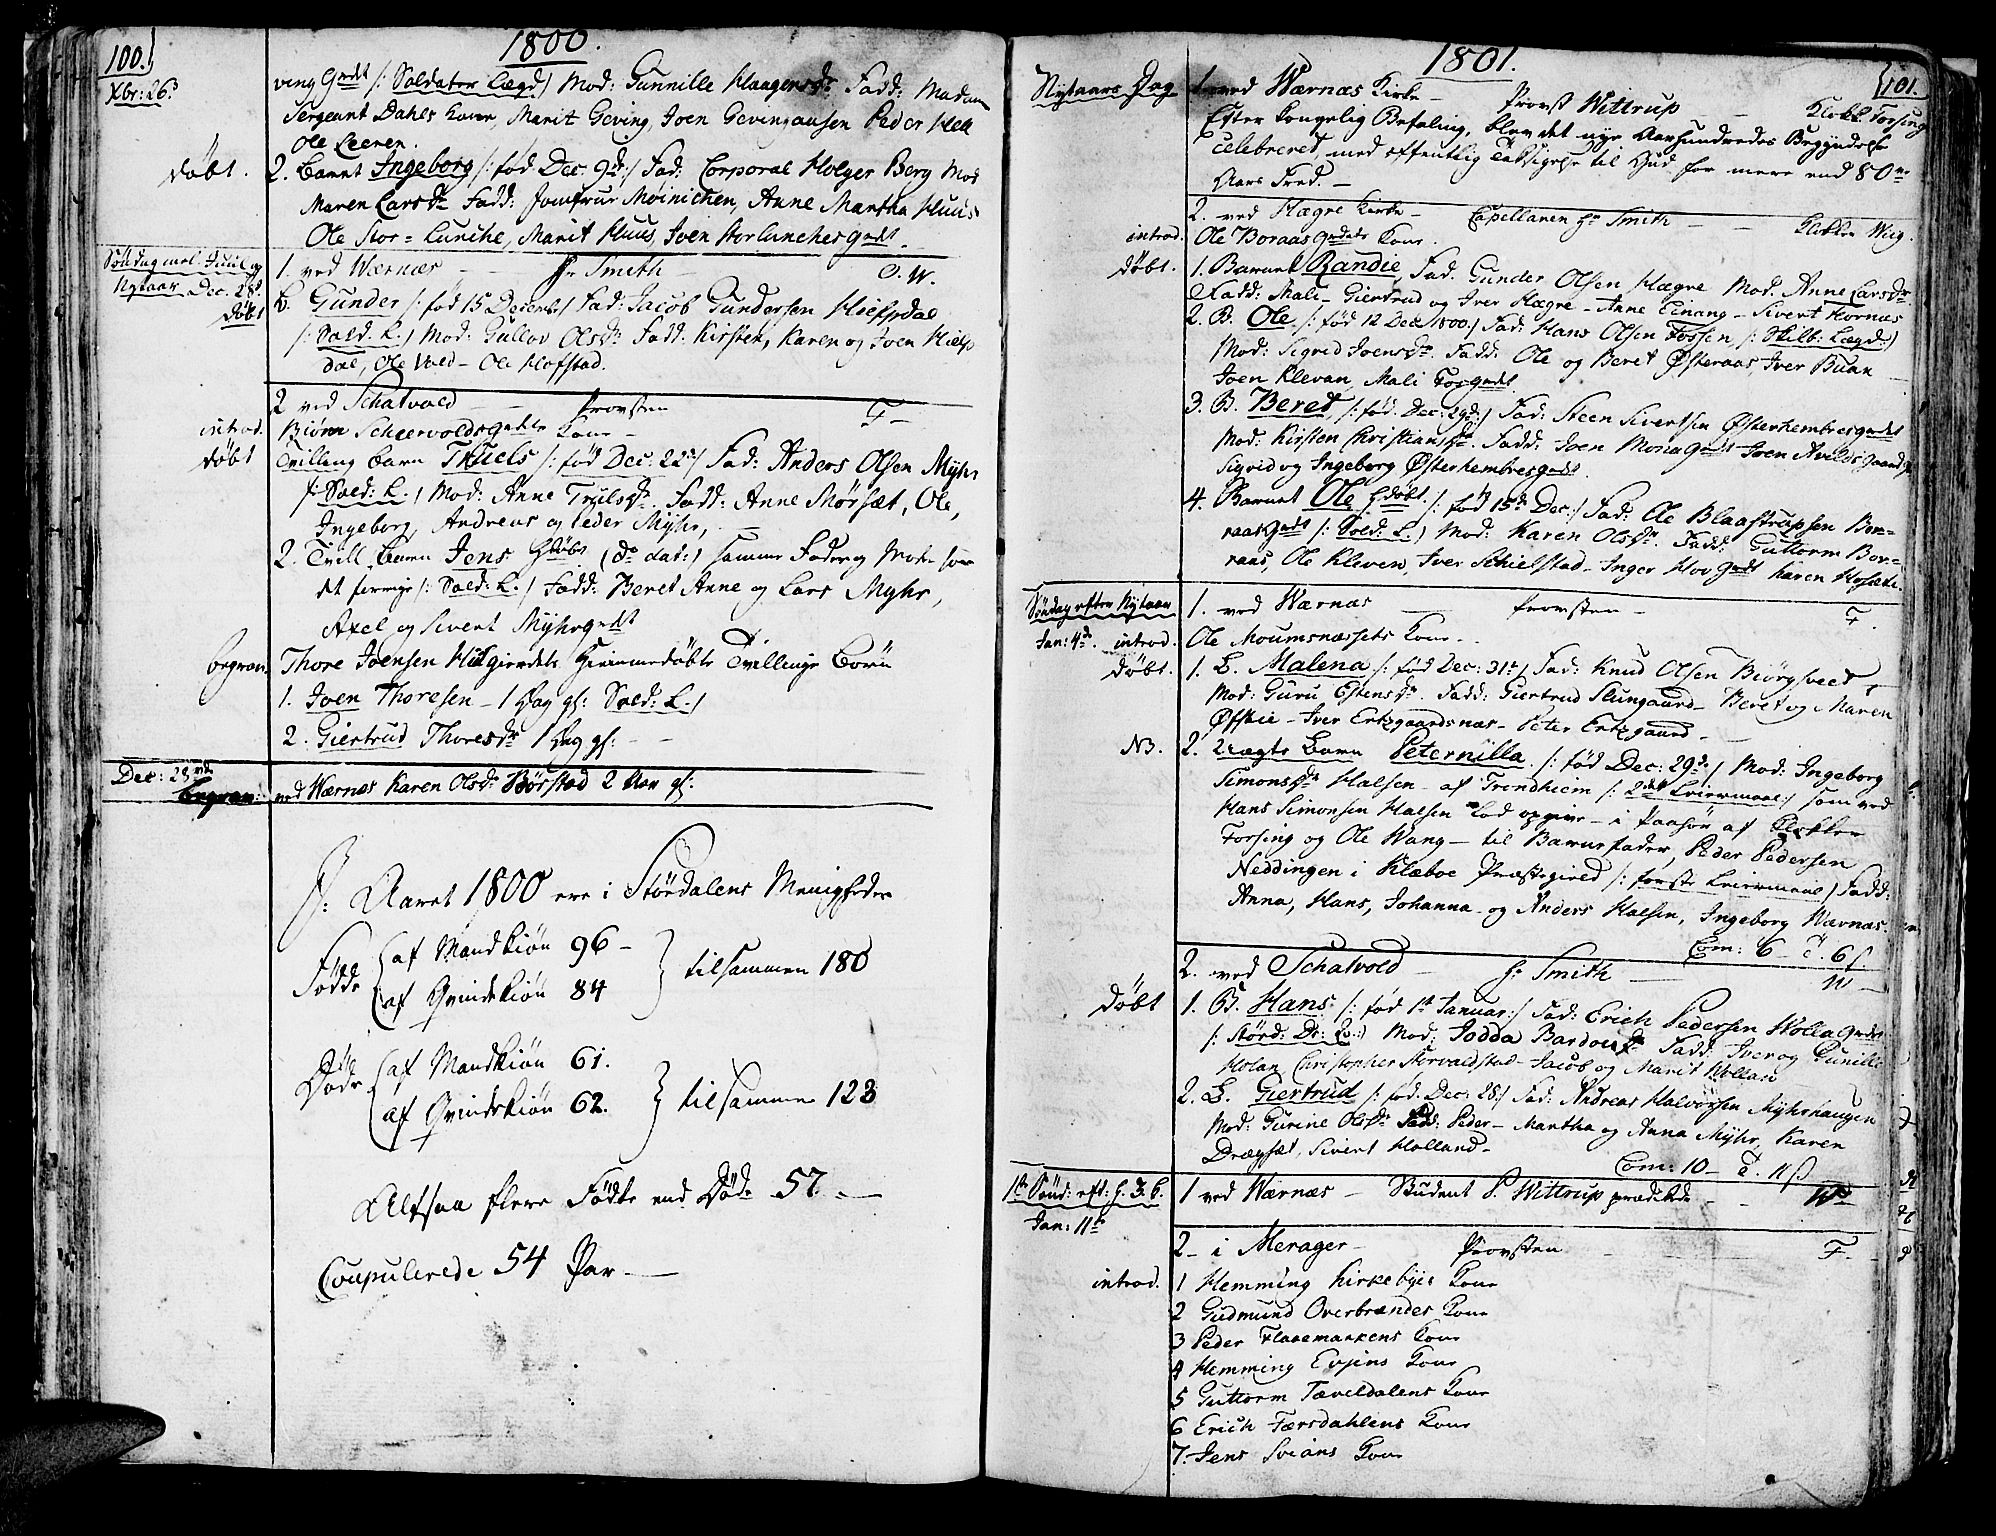 100.
1800.
Xbr: 26.
ving Gmdt /: Soldater Lægd / Mod: Gunnille Haagensdr Fadd: Madam
Sergeant Dahls Kone, Marit Geving, Joen Gevingaasen Peder Hell
Ole Leeren.
døbt. 2. Barnt Ingeborg /: fød Dec: 9d:/ Fad: Corporal Holger Berg Mod
Maren Larsdr Fadd: Jomfrue Møinichen, Anne Martha Huus
Ole Stor = Lunche, Marit Huus, Joen Storlunchesgmdt.
Søndag mel. Juul og 1. ved Wærnæs - Hr Smith - O. W.
Nytaar Dec. 28d.
døbt B. Gunder /: fød 15 Decemb / Fad: Jacob Gundersen Hielsdal
/: Sold. L. / Mod: Gullov Olsdr Fadd: Kirsten, Karen og Joen Hiels
dal, Ole Vold - Ole Hofstad.
2 ved Schatvold - Provsten F -
introd. Biørn Scheervoldsgmdts Kone -
døbt Tvilling barn Thuels /: fød Dec: 22 / Fad: Anders Olsen Myhr
/: Sold: L. / Mod: Anne Truelsdr. Fadd: Anne Mørsæt, Ole,
Ingeborg, Andreas og Peder Myhr, -
2. Tvill. Barn Jens Hdøbt (do dat:) samme Fader og Moder som
det forrige /: Sold: L. / Fadd: Beret Anne og Lars Myhr,
Axel og Sivert Myhrgmdt
begrav. Thore Joensen Hielgierdets Hiemmedøbte Tvillinge Børn
1. Joen Thoresen - 1 Dag gl: Sold: L. /
2. Giertrud Thoresdr 1 Dag gl: -
Dec: 29de
begrav: ved Wærnæs Karen Olsdr Børstad 2 Aar gl:
J: Aaret 1800 ere i Størdalens Menigheder
Fødde af Mandkiøn 96 -
af Qvindekiøn 84 tilsammen 180
Døde af Mandkiøn 61.
af Qvindekiøn 62. tilsammen 123
Altsaa flere Fødte end Døde 57. -
Copulerede 54 Par -
1801.
101.
Nytaars Dag 1. ved Wærnæs Kirke - Provst Wittrup - Klokk. Forsing
Efter Kongelig Befaling, blev det nye Aarhundredes Begyndelse
celebreret, med offentlig Taksigelse til Gud for mere end 80
Aars Fred. -
2. ved Hægre Kirke - Capellanen Hr Smith - Klokker Wiig.
introd. Ole Boraasgmdts Kone.
døbt. 1. Barnet Randie, Fad. Gunder Olsen Hægre Mod. Anne Larsdr
Fadd: Mali - Giertrud og Iver Hægre - Anne Einang - Sivert Hornæs
2. B. Ole /: fød 12 Dec 1800. / Fad: Hans Olsen Fossen /: Skilb: Lægd:/
Mod: Sigrid Joensdr. Fadd: Ole og Beret Østeraas, Iver Buan
Joen Klevan, Mali Fosgmdt
3. B. Beret /: fød. Dec: 29d:/ Fad: Steen Sivertsen Østerkembresgmdt
Mod: Kirsten Christiansdr. Fadd: Joen Monagmdt Joen Avelds gaard
Sigrid og Ingeborg Østerkembresgmdt.
4. Barnet Ole Hdøbt. /: fød 15de Dec:/ Fad: Ole Blaastrupsen Bor-
raasgmdt /: Sold: L. / Mod: Karen Olsdr. Fadd: Guttorm Bor-
raas, Ole Kleven, Iver Schielstad - Inger Hovgmdt Karen Hofsæte.
Søndag efter Nytaar 1. ved Wærnæs - Provsten - F.
Jan: 4de. introd. Ole Moumsnæssets Kone. -
døbt. 1. B. Malena /: fød Dec: 31te / Fad: Knud Olsen Biørgsveet -
Mod: Guru Estensdr. Fadd: Giertrud Slungaard - Beret og Maren
Øfstie - Iver Ertzgaardsnæs - Peter Ertzgaard -
NB. 2. Uægte Barn Peternilla /: fød Dec: 29d. / Mod: Ingeborg
Simonsdr Halsen - af Trondhiem /: 2det Leiermaal:/ som ved
Hans Simonsen Halsen lod opgive - i Paahør af Klokker
Forsing og Ole Wang - til Barnefader, Peder Pedersen
Neddingen i Klæboe Præstegield /: første Leiermaal / Fadd:
Anna, Hans, Johanna - og Anders Halsen, Ingeborg Wærnæs.
Com: 6 - T. 6 s.
2. ved Schatvold - Hr Smith - W -
døbt 1. B. Hans /: fød 1te Januar:/ Fad: Erich Pedersen Hollagmdt
/: Størd: Dr: L.:/ Mod: Jodda Bardousdr Fadd: Iver og Gunille
Holan Christopher Storvaldstad - Jacob og Marit Hollan
2. B. Giertrud /: fød. Dec: 28 / Fad: Andreas Halvorsen Myhrhaugen
Mod: Gurine Olsdr Fadd: Peder - Martha og Anna Myhr, Karen
Drægset, Sivert Holland -
Com: 10 - T. 11 s
1te Sønd: eft: H. 3. K. 1 ved Wærnæs - Student P. Wittrup prædikede - W
Jan: 11te
2 - i Merager - Provsten - F -
introd. 1 Hemming Kirkebyes Kone
2 Gudmund Overbrændes Kone
3 Peder Flaaemarkens Kone
4 Hemming Evjens Kone
5 Guttorm Tæveldalens Kone
6 Erich Færsdahlens Kone
7. Jens Svians Kone